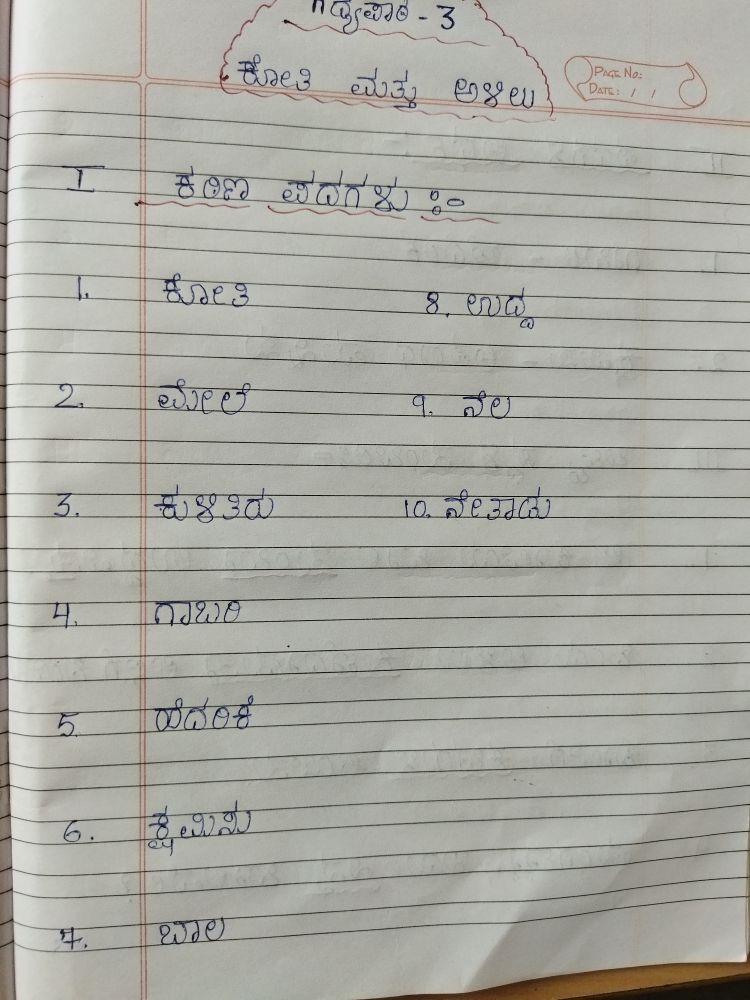 ಗದ್ಯಪಾಠ - 3
ಕೋತಿ ಮತ್ತು ಅಳಿಲು
PAGE NO:
DATE: / /
I ಕಠಿಣ ಪದಗಳು :-
1. ಕೋತಿ 8. ಉದ್ದ
2. ಮೇಲೆ 9. ನೆಲ
3. ಕುಳಿತಿರು 10. ನೇತಾಡು
4. ಗಾಬರಿ
5 ಹೆದರಿಕೆ
6. ಕ್ಷಮಿಸು
7. ಬಾಲ